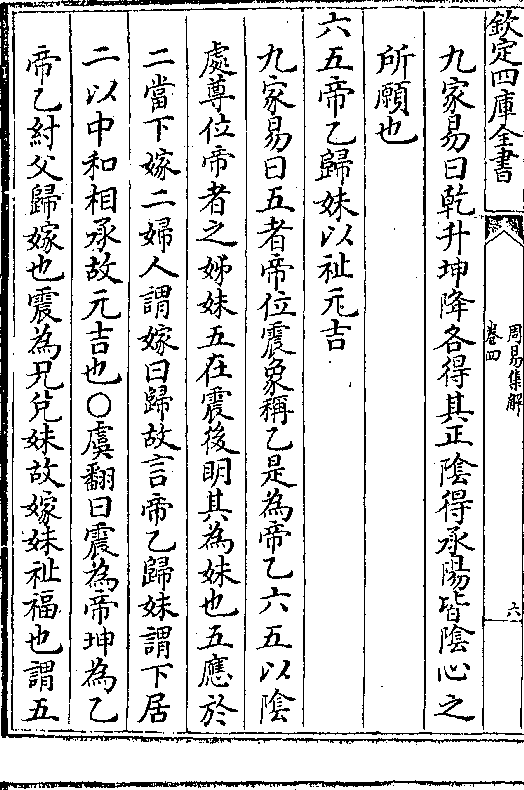 欽定四庫全書
周易集解
卷四
六
九家易曰乾升坤降各得其正陰得承陽皆陰心之
所願也
六五帝乙歸妹以祉元吉
九家易曰五者帝位震象稱乙是為帝乙六五以陰
處尊位帝者之姊妹五在震後明其為妹也五應於
二當下嫁二婦人謂嫁曰歸故言帝乙歸妹謂下居
二以中和相承故元吉也〇虞翻曰震為帝坤為乙
帝乙紂父歸嫁也震為兄兌妹故嫁妹祉福也謂五